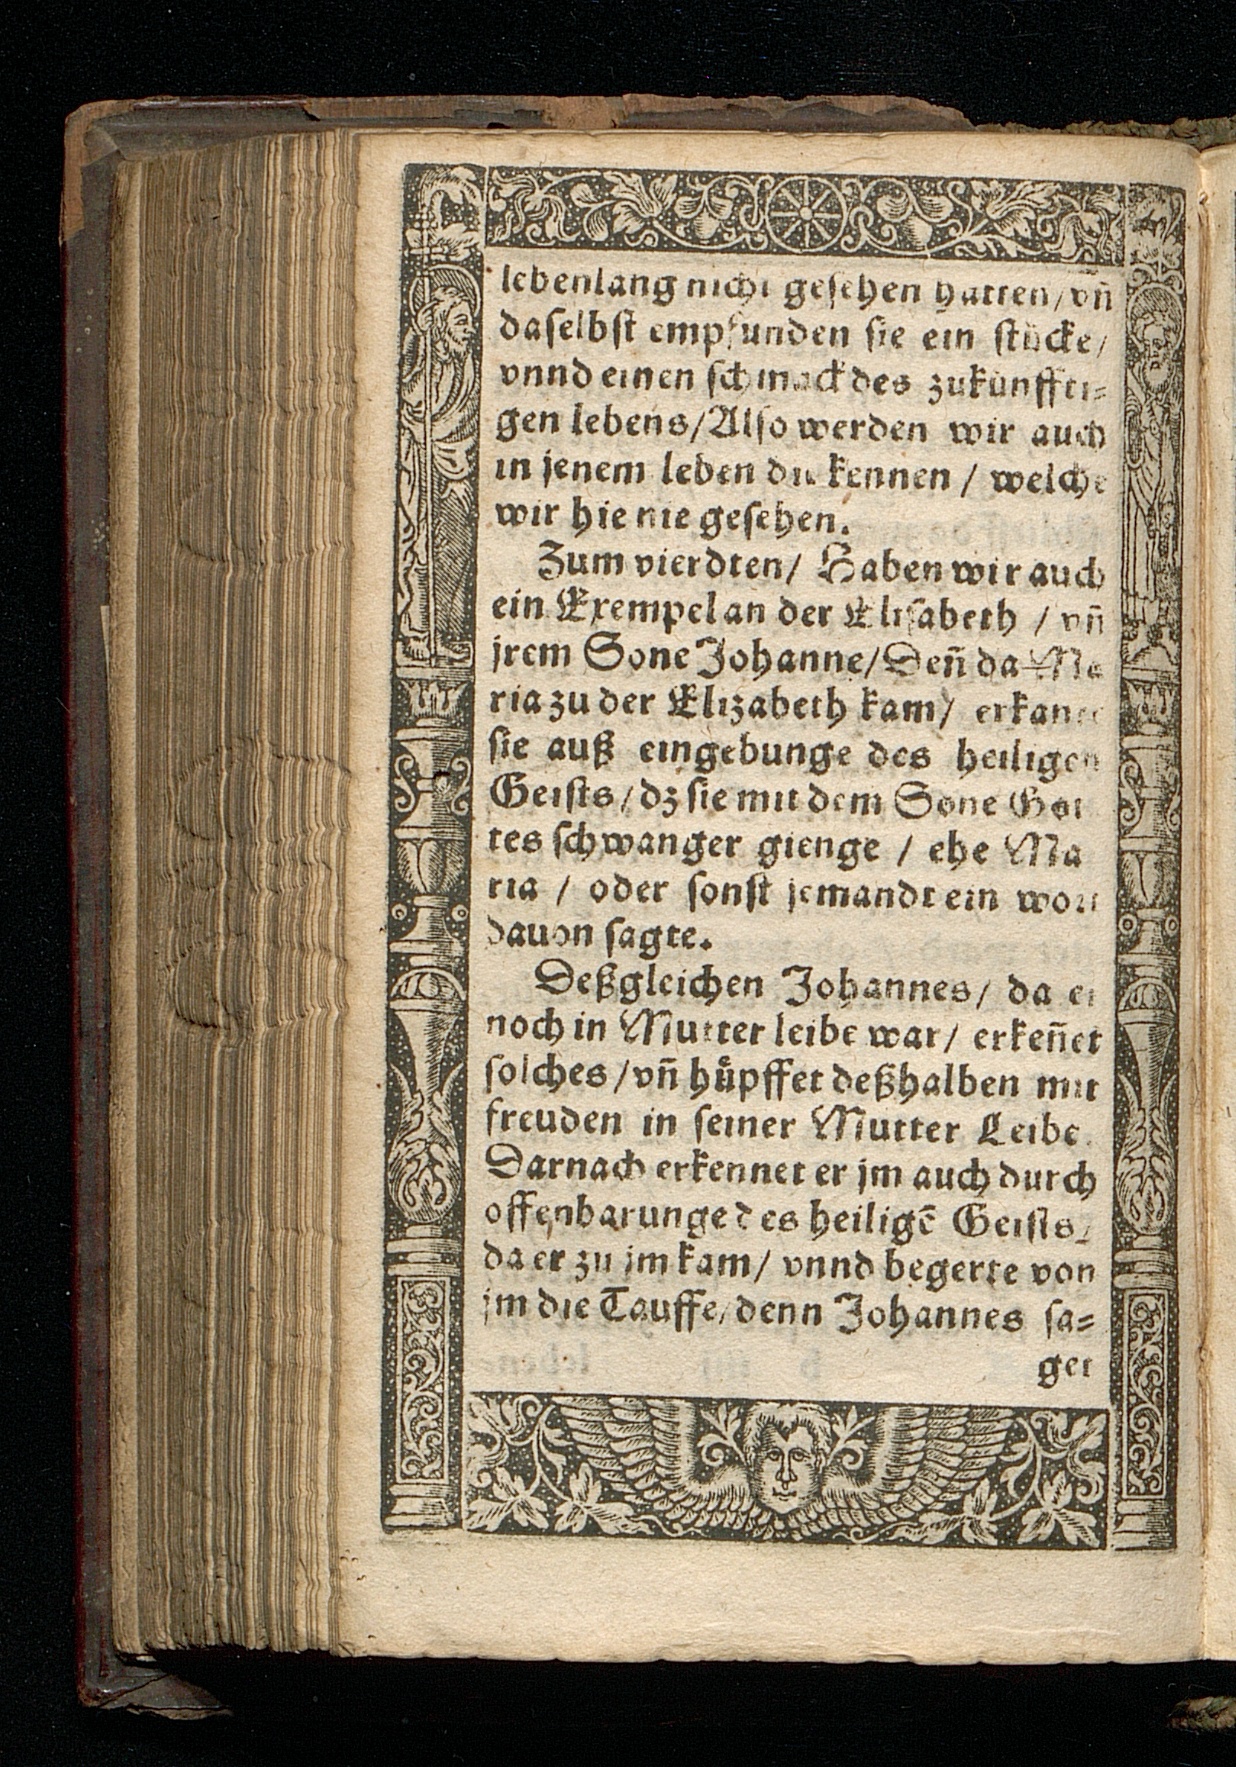 lebenlang nicht gesehen hatten/vñ
daselbst empfunden sie ein stücke/
vnnd einen schmack des zukünffti-
gen lebens/Also werden wir auch
in jenem leben die kennen / welche
wir hie nie gesehen.
Zum vierdten/ Haben wir auch
ein Exempel an der Elisabeth / vñ
jrem Sone Johanne/Deñ da Ma
ria zu der Elizabeth kam/ erkante
sie auß eingebunge des heiligen
Geists/dz sie mit dem Sone Got
tes schwanger gienge / ehe Ma
ria / oder sonst jemandt ein wort
dauon sagte.
Deßgleichen Johannes/ da er
noch in Mutter leibe war/ erkeñet
solches/vñ hüpffet deßhalben mit
freuden in seiner Mutter Leibe.
Darnach erkennet er jm auch durch
offenbarunge des heiligē Geists/
da er zu jm kam/ vnnd begerte von
jm die Tauffe/denn Johannes sa-
get